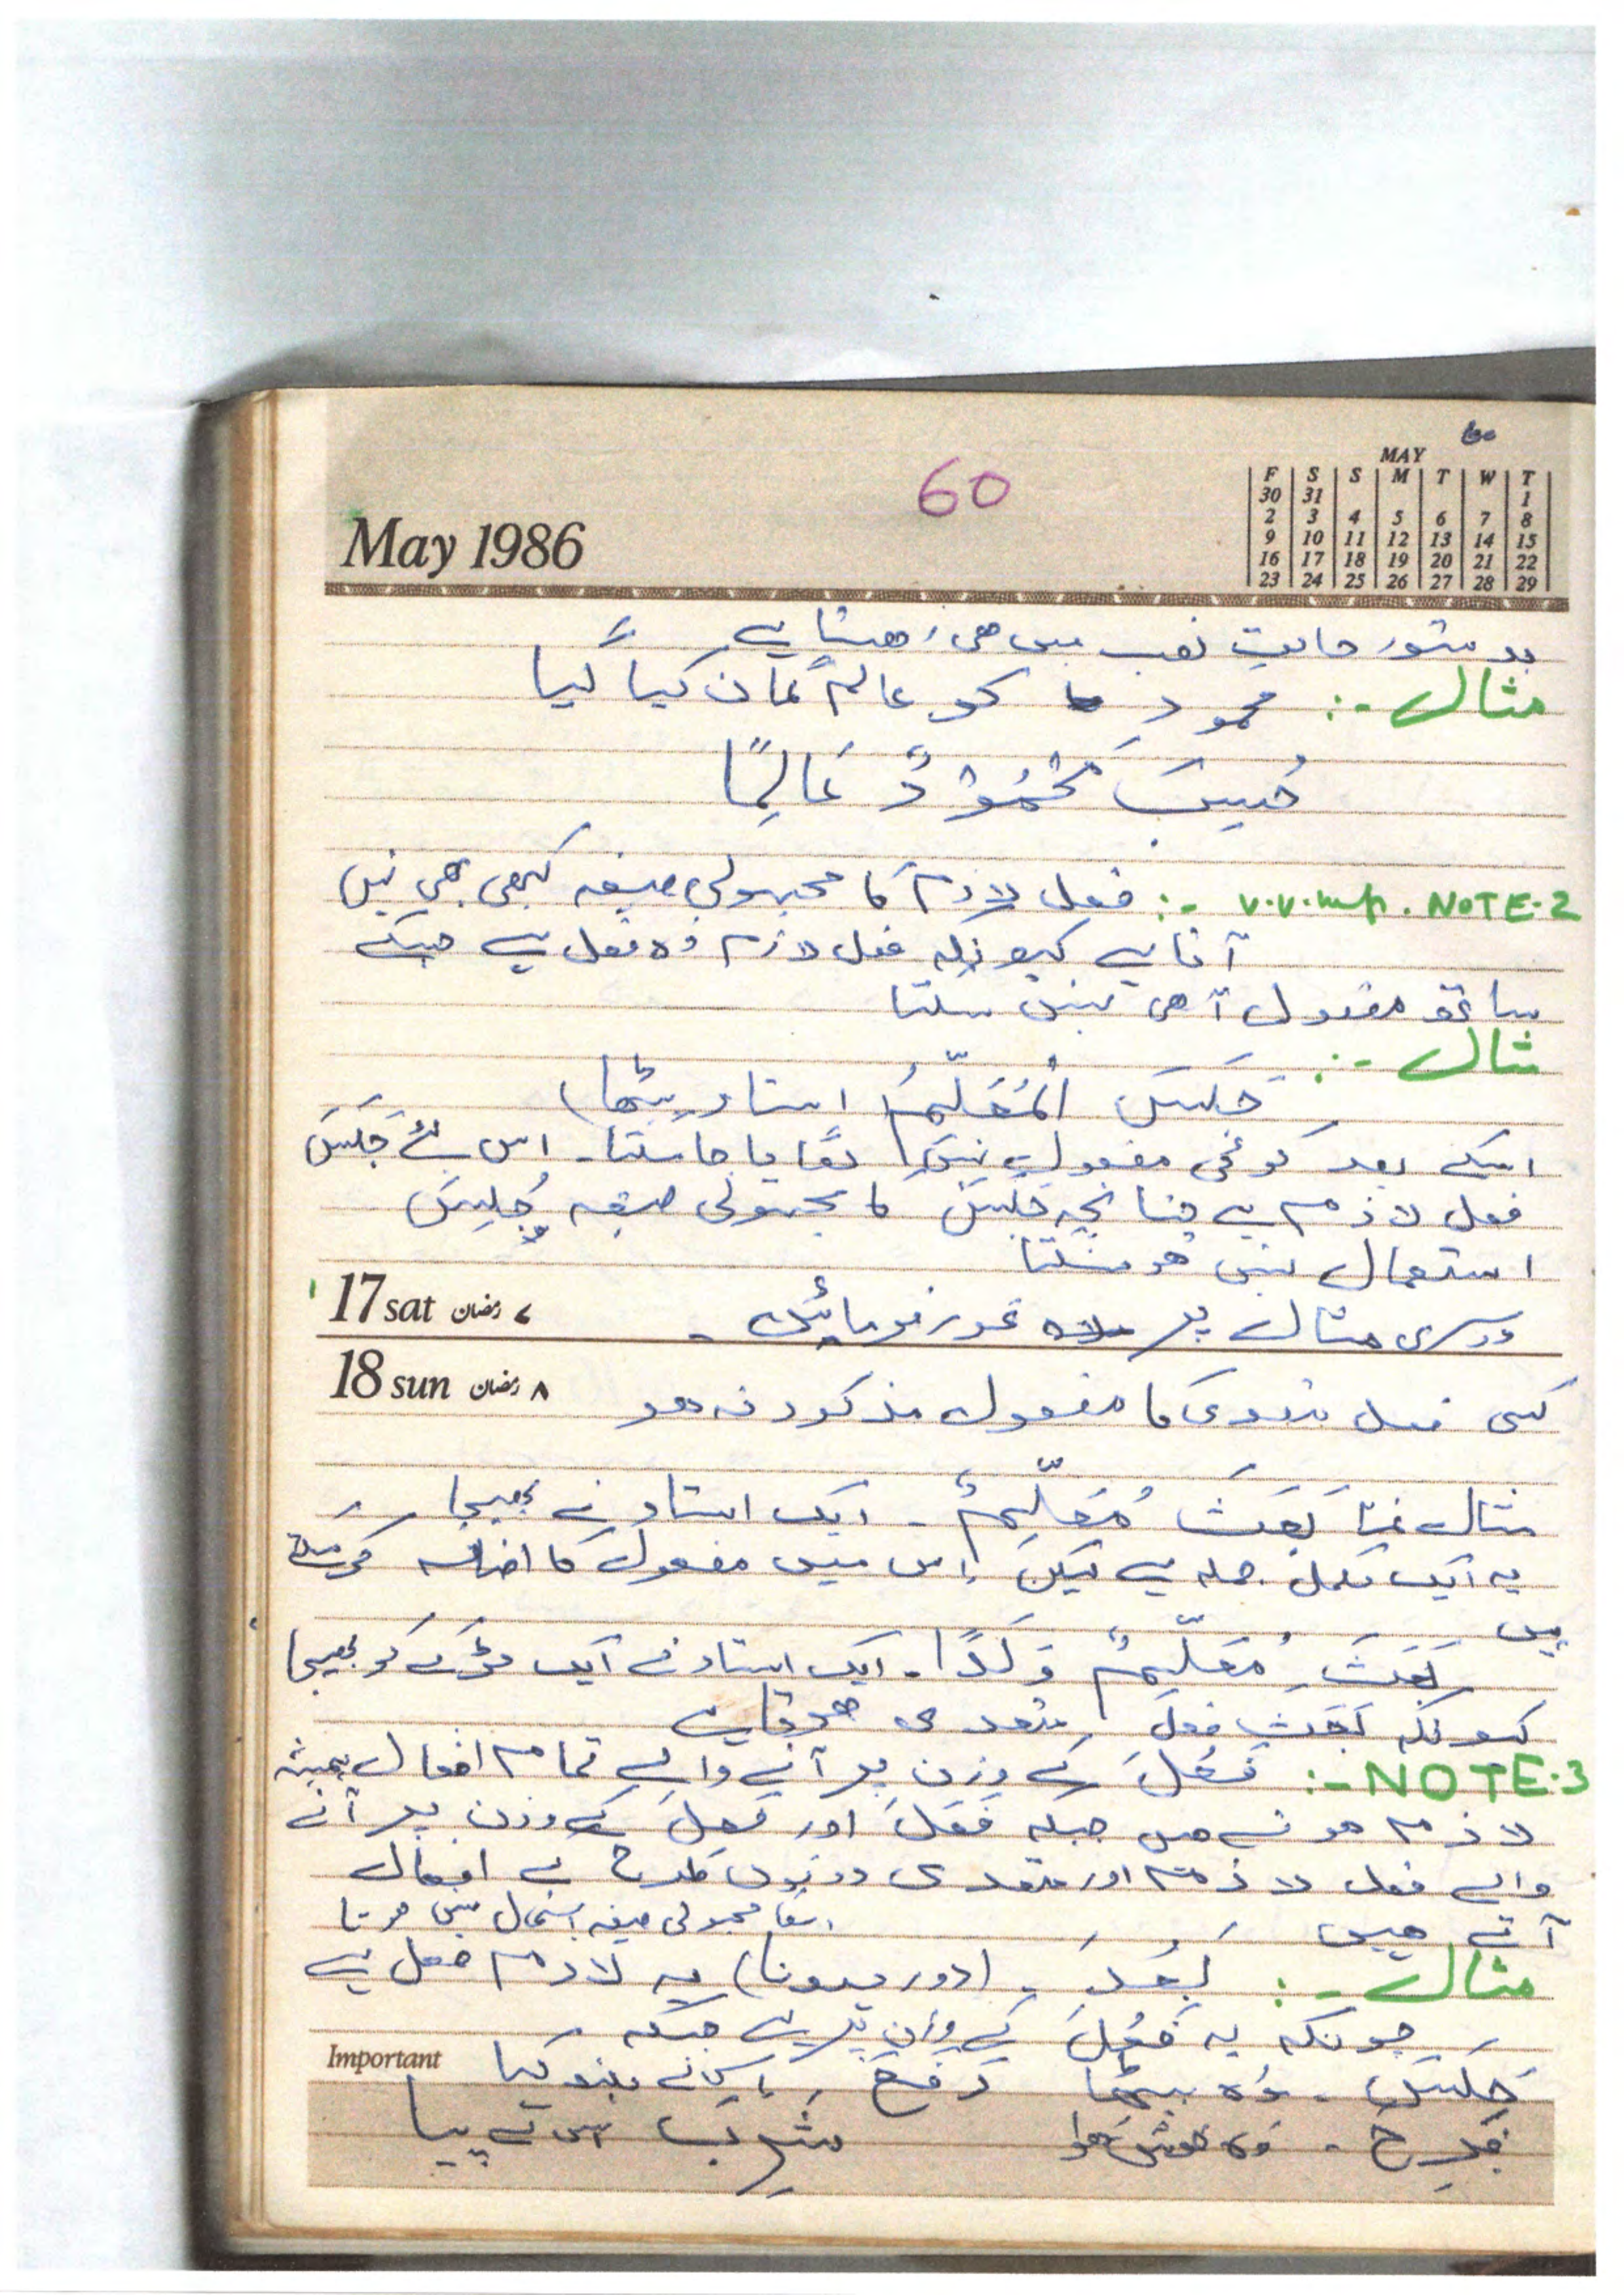 60
60
May 1986
MAY
F S S M T W T
30 31 1
2 3 4 5 6 7 8
9 10 11 12 13 14 15
16 17 18 19 20 21 22
23 24 25 26 27 28 29
بدستور حالتِ نصب میں ھی رھتا ہے
مثال :- محمود کو عالم گمان کیا گیا
حُسِبَ مَحْمُوْدٌ عَالِمًا
v.v.imp. NOTE.2 :- فعل لازم کا مجہولی صیغہ کبھی بھی نہیں
آتا ہے کیونکہ فعل لازم وہ فعل ہے جسکے
ساتھ مفعول آ ھی نہیں سکتا
مثال :-
جَلَسَ الْمُعَلِّمُ (استاد بیٹھا)
اسکے بعد کوئی مفعول نہیں لگایا جا سکتا۔ اس لئے جَلَسَ
فعل لازم ہے چنانچہ جَلَسَ کا مجہولی صیغہ جُلِسَ
استعمال نہیں ھو سکتا
17 sat ۷ رمضان
دوسری مثال پر غور فرمائیں ۔
18 sun ۸ رمضان
کسی فعل متعدی کا مفعول مذکور نہ ھو
مثال بَعَثَ مُعَلِّمٌ ۔ ایک استاد نے بھیجا
یہ ایک مکمل جملہ ہے لیکن اس میں مفعول کا اضافہ کر سکتے
ہیں
بَعَثَ مُعَلِّمٌ وَلَدًا ۔ ایک استاد نے ایک لڑکے کو بھیجا
کیونکہ بَعَثَ فعل متعدی
NOTE.3 :- فَعُلَ کے وزن پر آنے والے تمام افعال ہمیشہ
لازم ھوتے ھیں جبکہ فَعَلَ اور فَعِلَ کے وزن پر آنے
والے فعل لازم اور متعدی دونوں طرح کے افعال
آتے ھیں
اسکا مجہولی صیغہ استعمال نہیں ھوتا
مثال :- بَعُدَ ۔ (دور ہونا) یہ لازم فعل ہے
چونکہ یہ فَعُلَ کے وزن پر ہے جبکہ
Important
جَلَسَ ۔ وہ بیٹھا
فَرِحَ ۔ وہ خوش ھوا شَرِبَ اس نے پیا